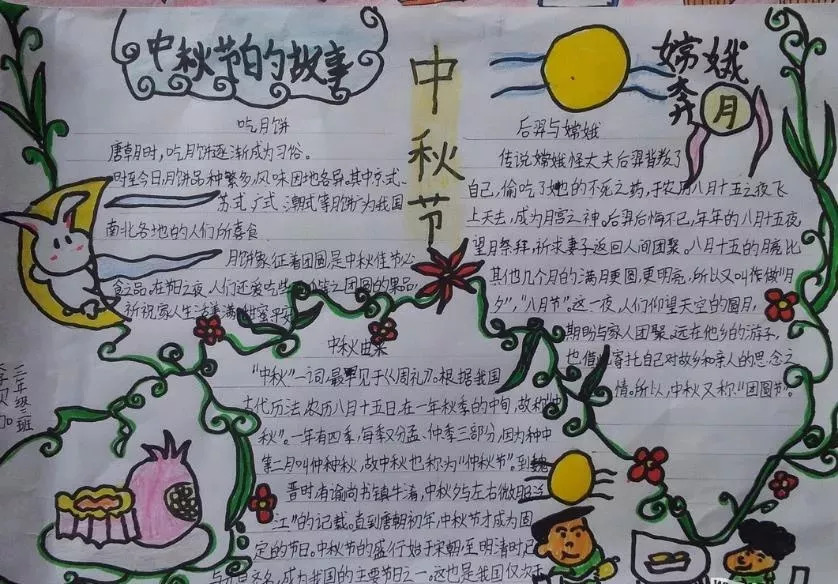 中秋节的故事
吃月饼
唐朝时，吃月饼逐渐成为习俗。
时至今日，月饼品种繁多，风味因地各异。其中京式、
苏式、广式、潮式等月饼广为我国
南北各地的人们所喜食
月饼象征着团圆是中秋佳节必
食之品。在节日之夜，人们还爱吃些 团圆的果品
祈祝家人生活美满、甜蜜平安
中秋节
嫦娥奔月
后羿与嫦娥
传说嫦娥怪丈夫后羿背叛了
自己，偷吃了她的不死之药，于农历八月十五之夜飞
上天去，成为月宫之神。后羿后悔不已，年年的八月十五夜，
望月祭拜，祈求妻子返回人间团聚。八月十五的月亮比
其他几个月的满月更圆，更明亮，所以又叫作做“月
夕”，“八月节”。这一夜，人们仰望天空的圆月，
期盼与家人团聚。远在他乡的游子，
也借此寄托自己对故乡和亲人的思念之
情。所以，中秋又称“团圆节”。
中秋由来
“中秋”一词，最早见于《周礼》。根据我国
古代历法，农历八月十五日，在一年秋季的中旬，故称“中
秋”。一年有四季，每季又分孟、仲、季三部分，因为秋中
第二月叫仲秋，故中秋也称为“仲秋节”。到魏
晋时，有“谕尚书镇牛渚，中秋夕与左右微服泛
江”的记载。直到唐朝初年，中秋节才成为固
定的节日。中秋节的盛行始于宋朝，至明清时，已
与元旦齐名，成为我国的主要节日之一。这也是我国仅次于
三年级三班